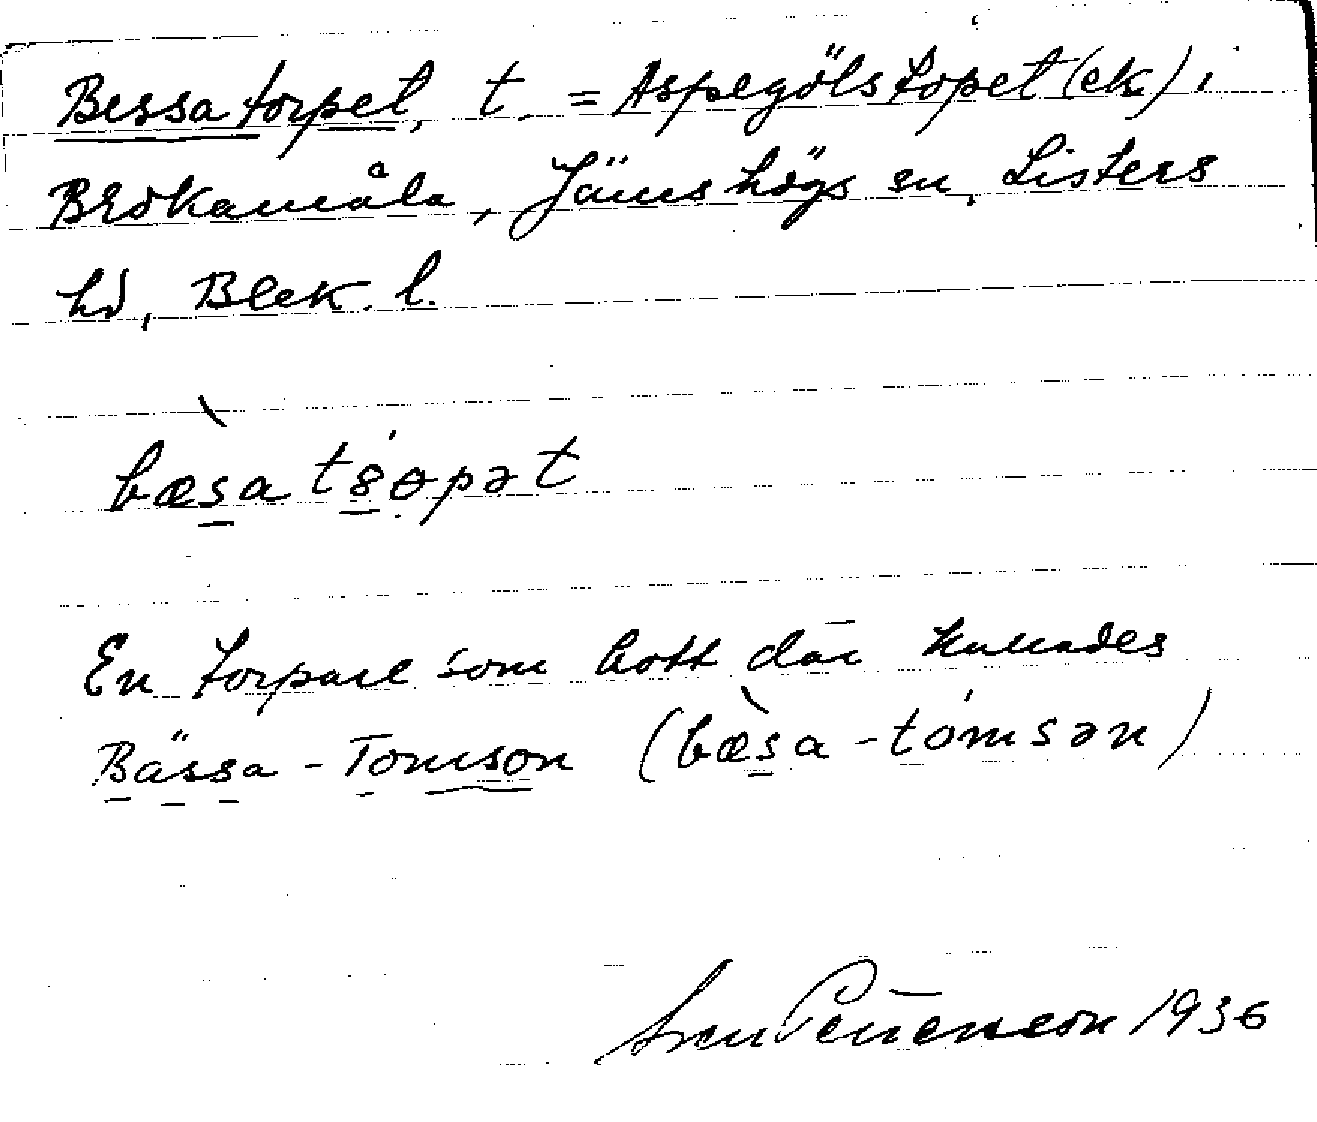 Bessatorpet, t. = Aspegölstopet (ek) i
Brokamåla, Jämshögs sn, Listers
hd, Blek. l.
bæsa tsopət
En torpare som bott där kallades
Bässa-Tomson (bæsa-tomsən)
Sven Peterson 1936